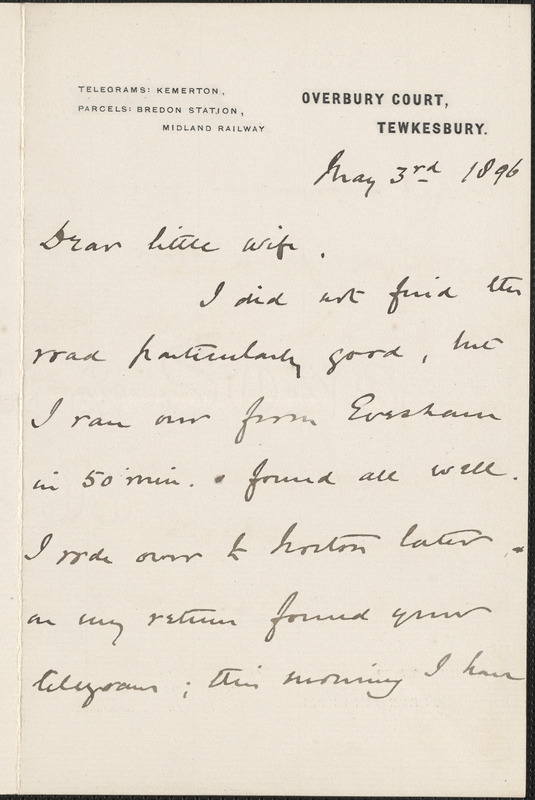 TELEGRAMS: KEMERTON,
PARCELS: BREDON STATION,
MIDLAND RAILWAY
OVERBURY COURT,
TEWKESBURY.
May 3rd 1896
Dear little wife.
I did not find the
road particularly good, but
I ran over from Evesham
in 50 min. & found all well.
I rode over to Norton later &
on my return found your
telegram; this morning I have